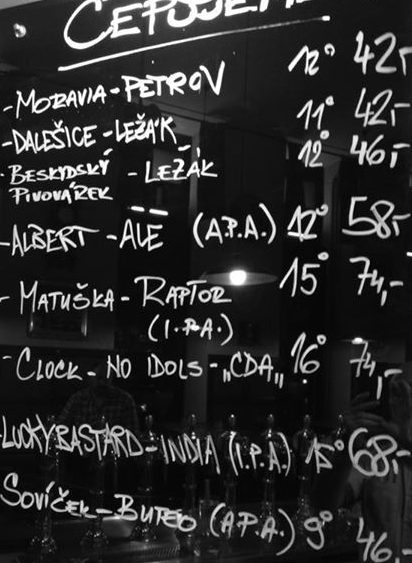 ČEPUJEME
-MORAVIA-PETROV 12° 42,-
-DALEŠICE-LEŽÁK 11° 42,-
-BESKYDSKÝ - LEŽÁK 12° 46,-
PIVOVÁREK
-ALBERT -ALE (A.P.A.) 12° 58,-
- MATUŠKA - RAPTOR 15° 74,-
(I.P.A.)
-CLOCK - NO IDOLS - „CDA„ 16° 74,-
-LUCKYBASTARD-INDIA (I.P.A.) 15° 68,-
SOVÍČEK-BUTEO (A.P.A.) 9° 46,-